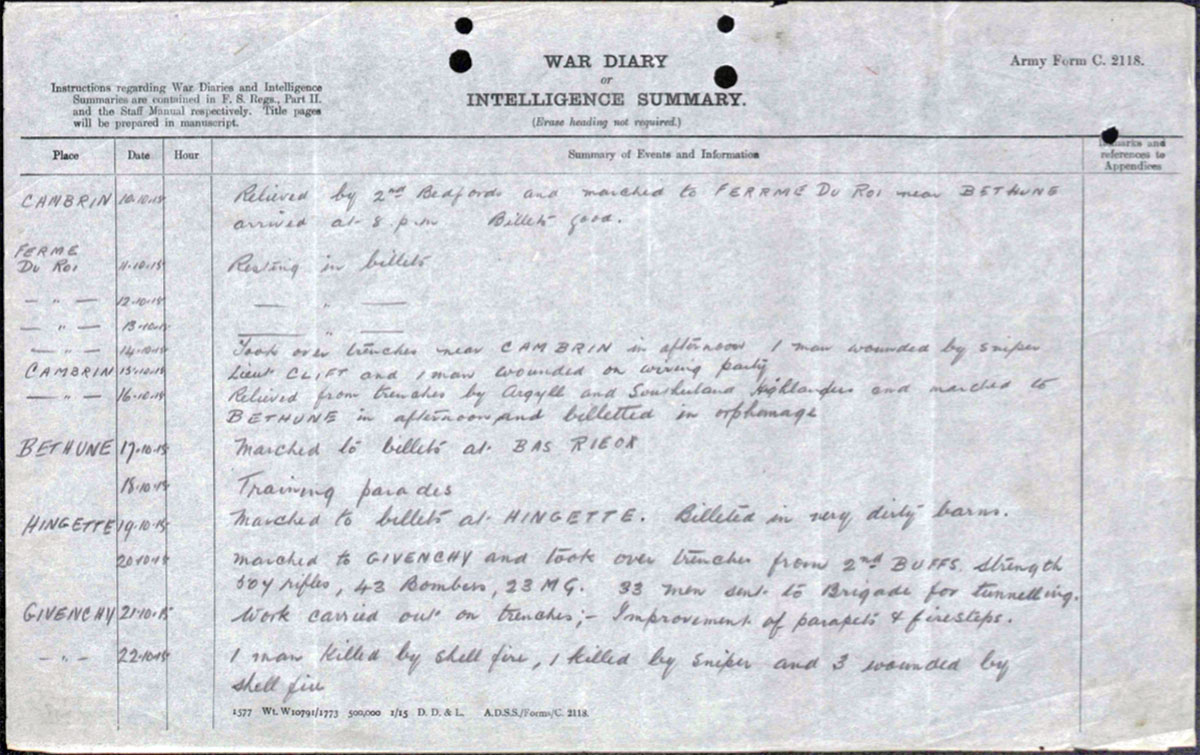 WAR DIARY
or
INTELLIGENCE SUMMARY.
(Erase heading not required.)
Army Form C. 2118.
Instructions regarding War Diaries and Intelligence
Summaries are contained in F. S. Regs., Part II.
and the Staff Manual respectively. Title pages
will be prepared in manuscript.
Place Date Hour Summary of Events and Information Remarks and
references to
Appendices
CAMBRIN 10.10.15 Relieved by 2nd Bedfords and marched to FERRME DU ROI near BETHUNE
arrived at 8 p.m Billets good.
FERME
DU ROI 11.10.15 Resting in billets
— " — 12.10.15 — " —
— " — 13.10.15 — " —
— " — 14.10.15 Took over trenches near CAMBRIN in afternoon 1 man wounded by sniper
CAMBRIN 15.10.15 Lieut CLIFT and 1 man wounded on wiring party
— " — 16.10.15 Relieved from trenches by Argyll and Southerland Highlanders and marched to
BETHUNE in afternoon and billetted in orphanage
BETHUNE 17.10.15 Marched to billets at BAS RIEOR
18.10.15 Training parades
HINGETTE 19.10.15 Marched to billets at HINGETTE. Billeted in very dirty barns.
20.10.15 marched to GIVENCHY and took over trenches from 2nd BUFFS. Strength
rifles, 43 Bombers, 23 MG. 33 men sent to Brigade for tunnelling.
GIVENCHY 21.10.15 Work carried out on trenches;- Improvement of parapets & firesteps.
— " — 22.10.15 1 man killed by shell fire, 1 killed by sniper and 3 wounded by
shell fire
1577 Wt. W10791/1773 500,000 1/15 D. D. & L. A.D.S.S./Forms/C. 2118.